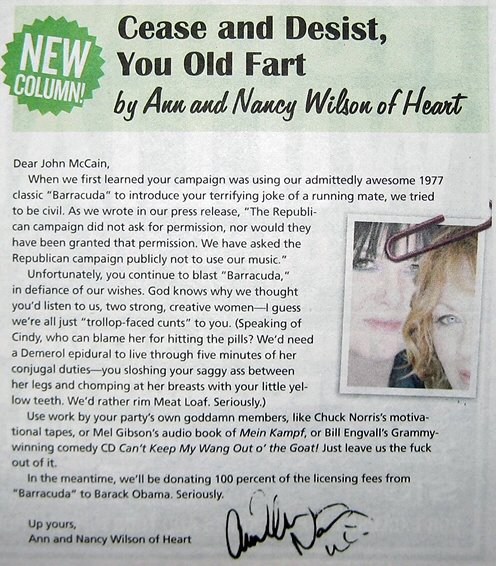 NEW
COLUMN!
Cease and Desist,
You Old Fart
by Ann and Nancy Wilson of Heart
Dear John McCain,
When we first learned your campaign was using our admittedly awesome 1977
classic “Barracuda” to introduce your terrifying joke of a running mate, we tried
to be civil. As we wrote in our press release, “The Republi-
can campaign did not ask for permission, nor would they
have been granted that permission. We have asked the
Republican campaign publicly not to use our music.”
Unfortunately, you continue to blast “Barracuda,”
in defiance of our wishes. God knows why we thought
you’d listen to us, two strong, creative women—I guess
we’re all just “trollop-faced cunts” to you. (Speaking of
Cindy, who can blame her for hitting the pills? We’d need
a Demerol epidural to live through five minutes of her
conjugal duties—you sloshing your saggy ass between
her legs and chomping at her breasts with your little yel-
low teeth. We’d rather rim Meat Loaf. Seriously.)
Use work by your party’s own goddamn members, like Chuck Norris’s motiva-
tional tapes, or Mel Gibson’s audio book of Mein Kampf, or Bill Engvall’s Grammy-
winning comedy CD Can’t Keep My Wang Out o’ the Goat! Just leave us the fuck
out of it.
In the meantime, we’ll be donating 100 percent of the licensing fees from
“Barracuda” to Barack Obama. Seriously.
Up yours,
Ann and Nancy Wilson of Heart